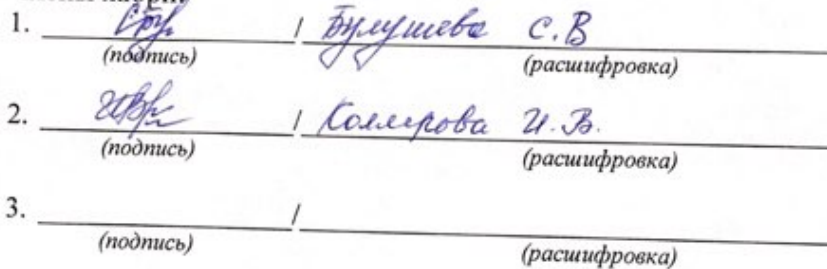 1. / Булушева С.В
(подпись) (расшифровка)
2. / И.В.
(подпись) (расшифровка)
3. /
(подпись) (расшифровка)